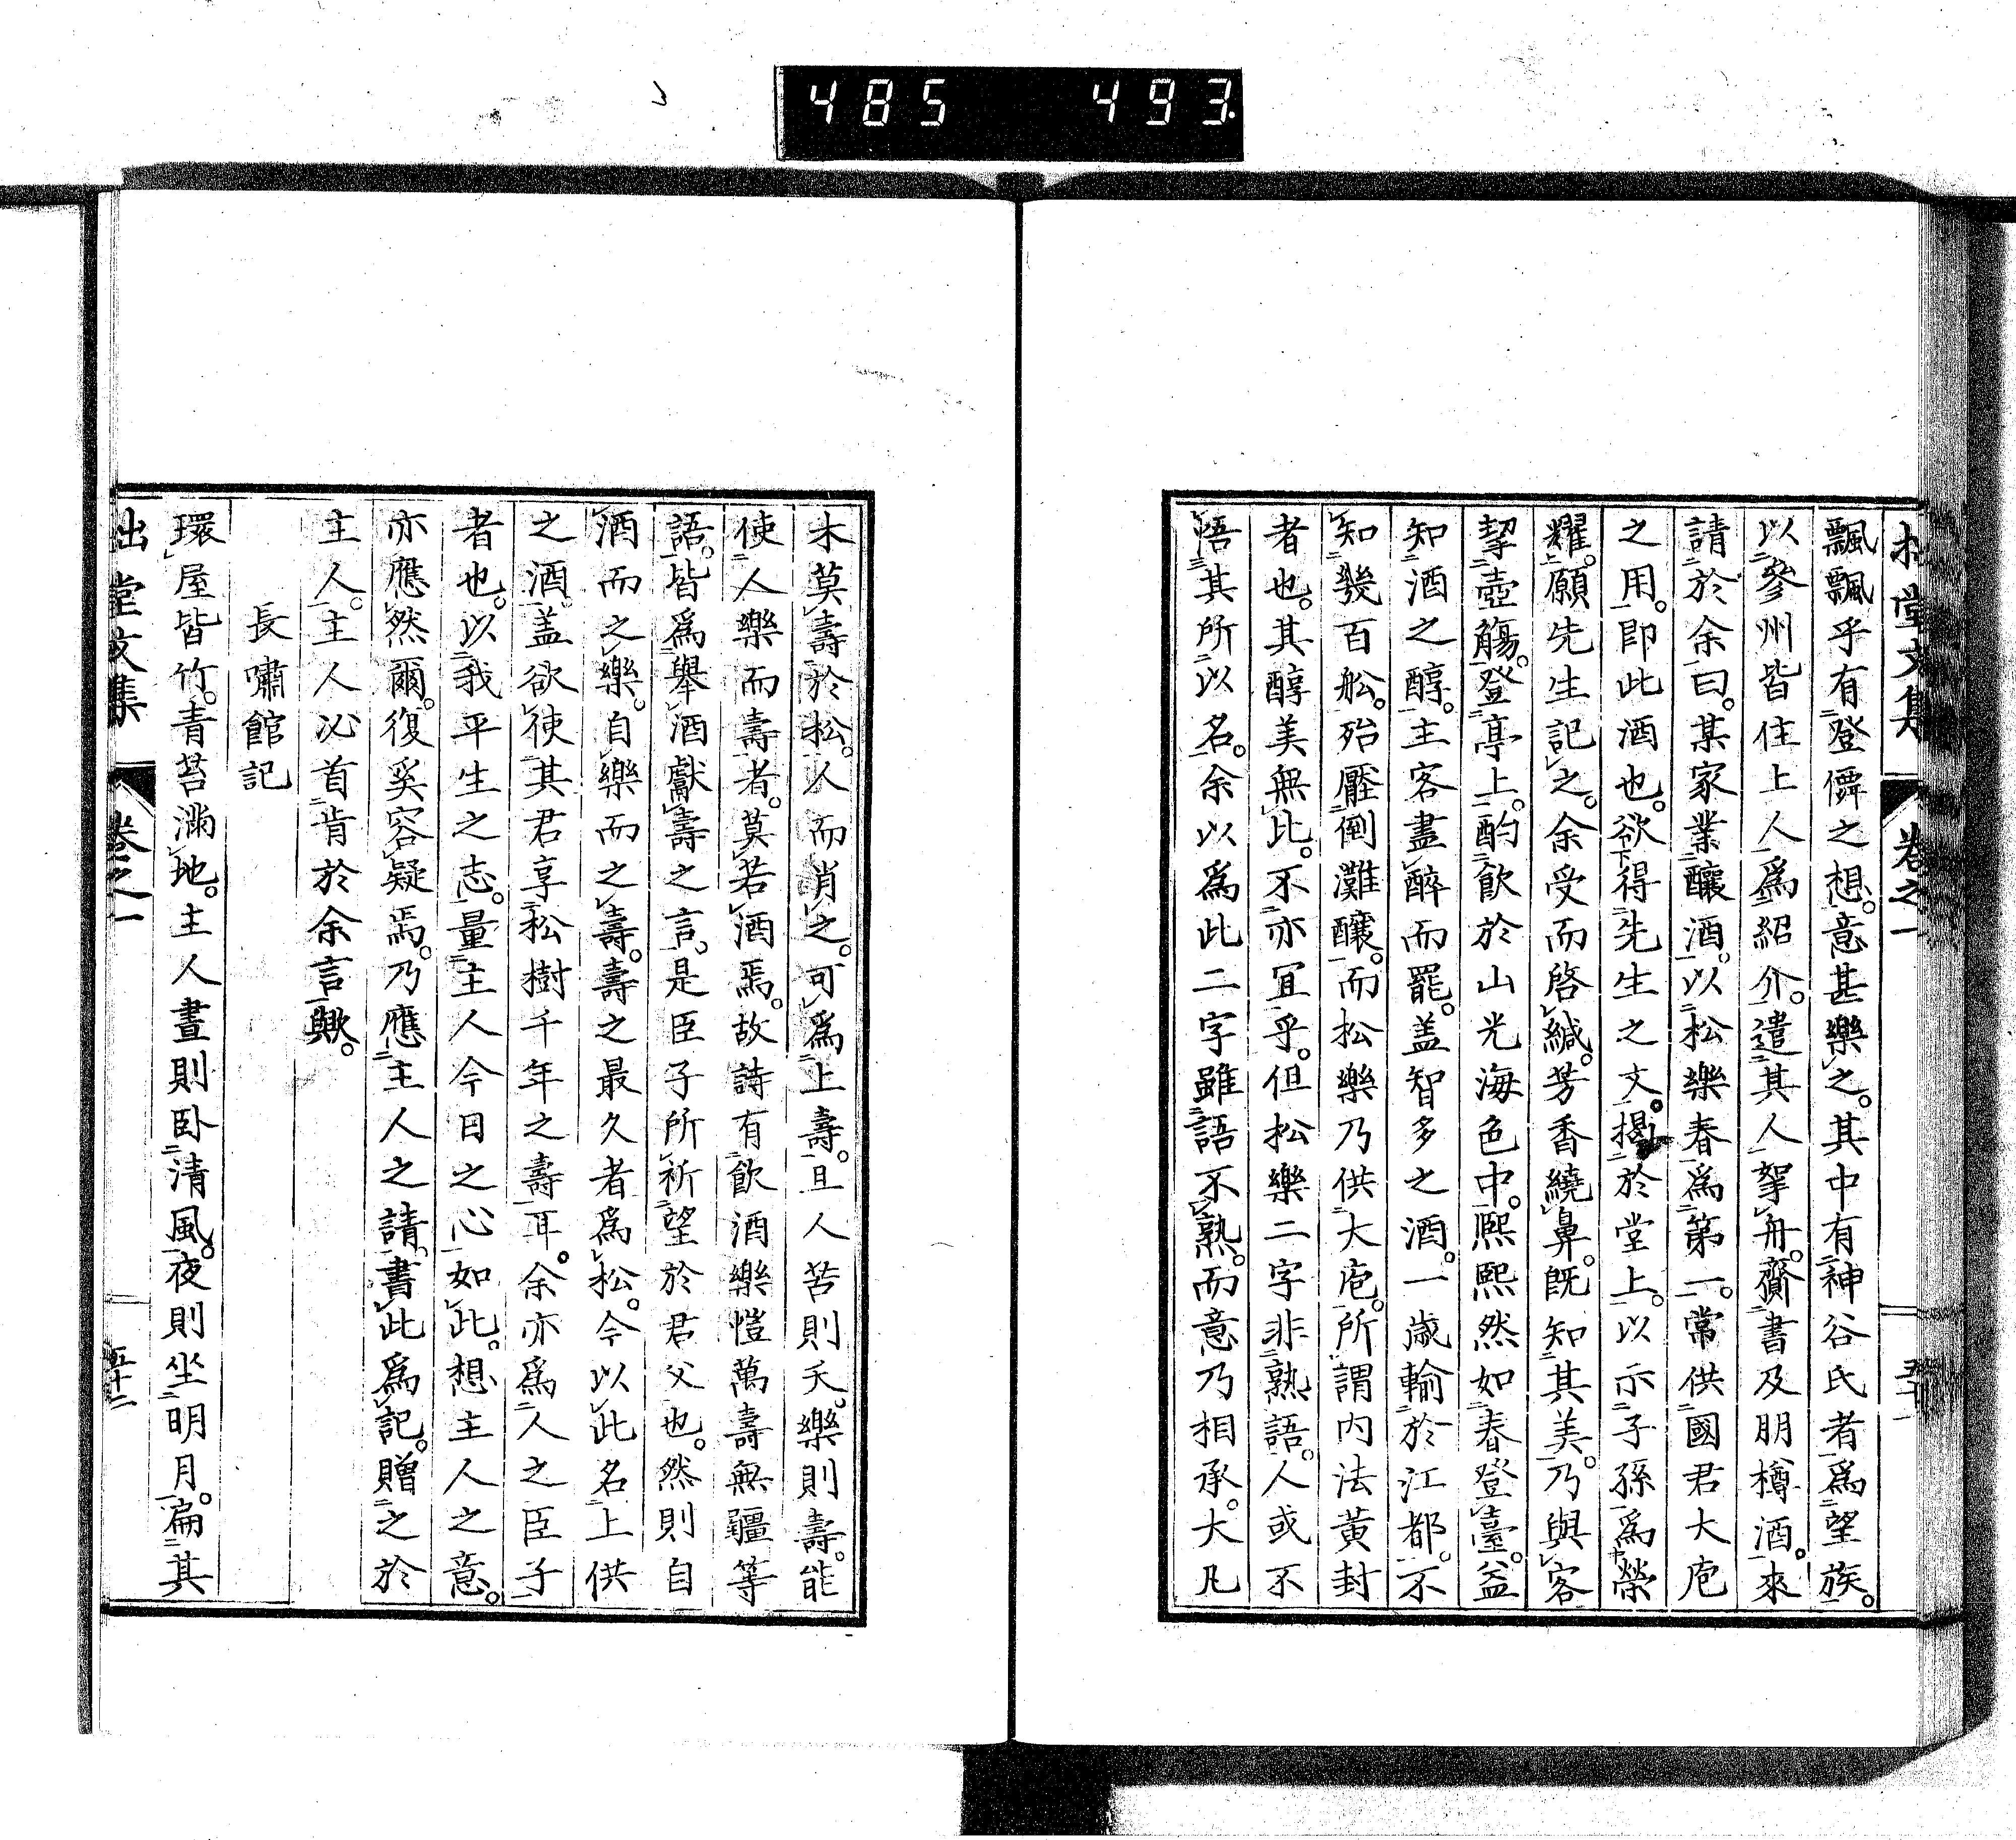 485 493.
拙堂文集 卷之一 五十一
飄飄乎有登僊之想。意甚樂之。其中有神谷氏者爲望族。
以參州皆住上人爲紹介。遣其人拏舟。齎書及朋樽酒。來
請於余曰。某家業釀酒。以松樂春爲第一。常供國君大庖
之用。卽此酒也。欲得先生之文。揭於堂上。以示子孫爲榮
耀。願先生記之。余受而啓緘。芳香繞鼻。旣知其美。乃與客
挈壺觴。登亭上。酌飮於山光海色中。熙熙然如春登臺。益
知酒之醇。主客盡醉而罷。盖智多之酒。一歲輸於江都。不
知幾百舩。殆壓倒灘釀。而松樂乃供大庖。所謂內法黃封
者也。其醇美無比。不亦宜乎。但松樂二字非熟語。人或不
悟其所以名。余以爲此二字雖語不熟。而意乃相承。大凡
木莫壽於松。人而肖之。可爲上壽。且人苦則夭。樂則壽。能
使人樂而壽者。莫若酒焉。故詩有飮酒樂愷萬壽無疆等
語。皆爲舉酒獻壽之言。是臣子所祈望於君父也。然則自
酒而之樂。自樂而之壽。壽之最久者爲松。今以此名上供
之酒。盖欲使其君享松樹千年之壽耳。余亦爲人之臣子
者也。以我平生之志。量主人今日之心如此。想主人之意。
亦應然爾。復奚容疑焉。乃應主人之請。書此爲記。贈之於
主人。主人必首肯於余言歟。
長嘯館記
環屋皆竹。青苔滿地。主人晝則臥清風。夜則坐明月。扁其
拙堂文集 卷之一 五十二